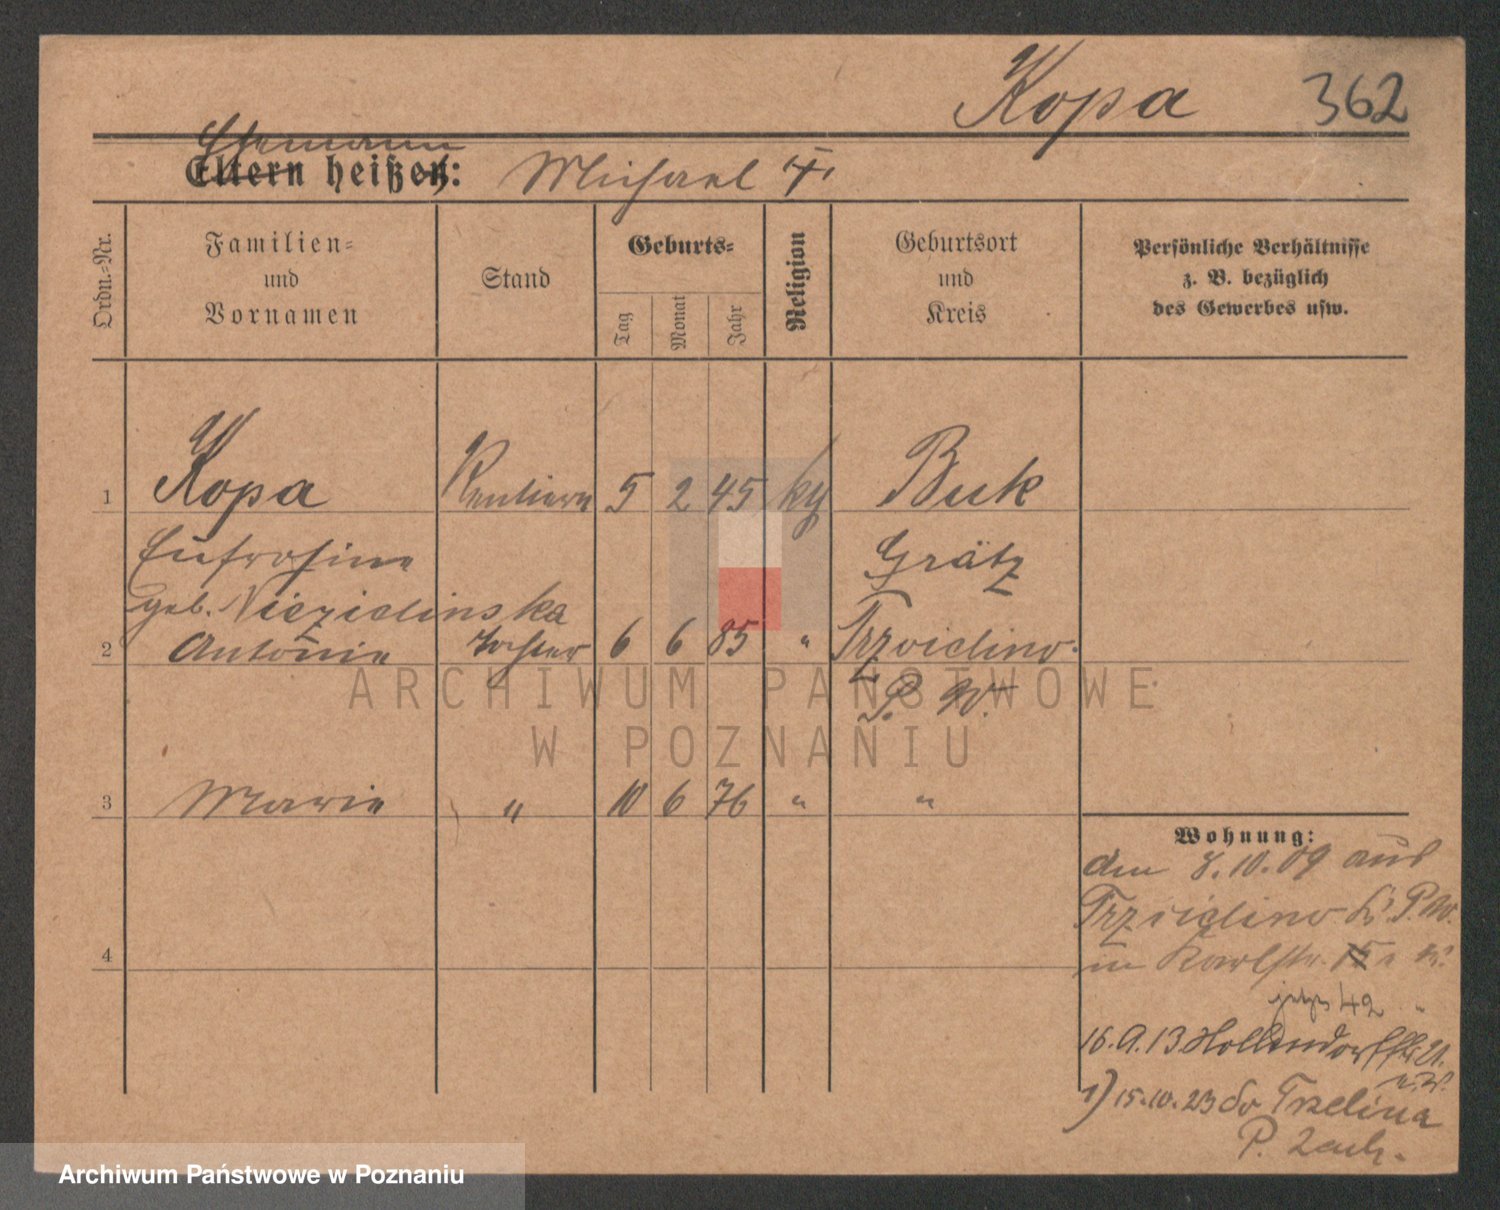 Kopa 362
Ehemann
Eltern heißen: Michael †.
Ordn.=Nr.
Familien=
und
Vornamen
Stand
Geburts=
Tag
Monat
Jahr
Religion
Geburtsort
und
Kreis
Persönliche Verhältnisse
z. B. bezüglich
des Gewerbes usw.
1 Kopa Rentiere 5 2 45 Buk
Eufrosine Grätz
geb.
2 Antonie Tochter 6 6 85 "
P. W.
3 Marie " 10 6 76 " "
Wohnung:
den 8.10.09 aus
P. W.
in Karlstr.
jetzt 42 "
4
1) 15.10.23
ARCHIWUM PAŃSTWOWE
W POZNANIU
Archiwum Państwowe w Poznaniu